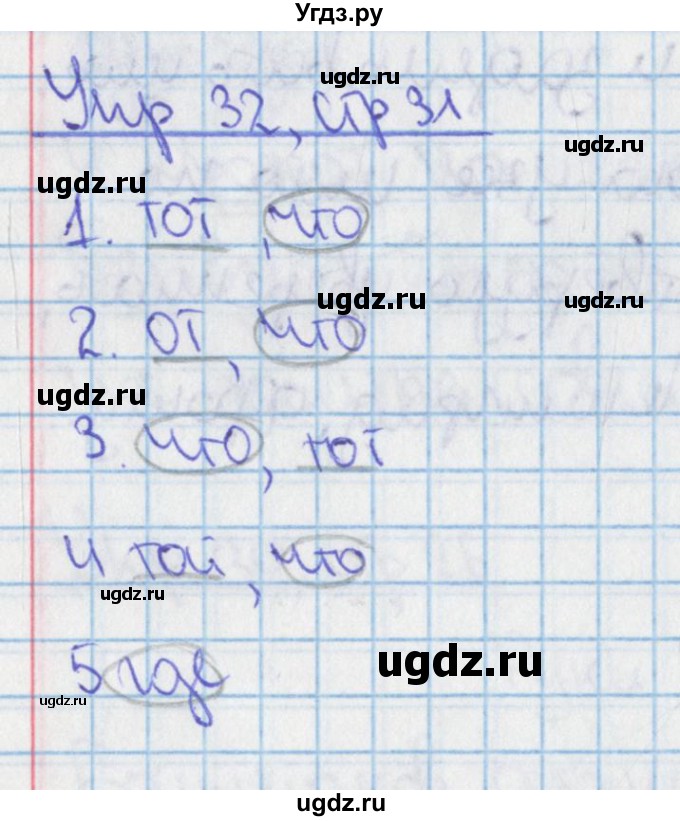 Угдз.ру
ugdz.ru
Упр 32, стр 31
ugdz.ru
ugdz.ru
1. тот, что
ugdz.ru
ugdz.ru
2. от, что
ugdz.ru
3. что, тот
4 той, что
ugdz.ru
ugdz.ru
5 где
ugdz.ru
ugdz.ru